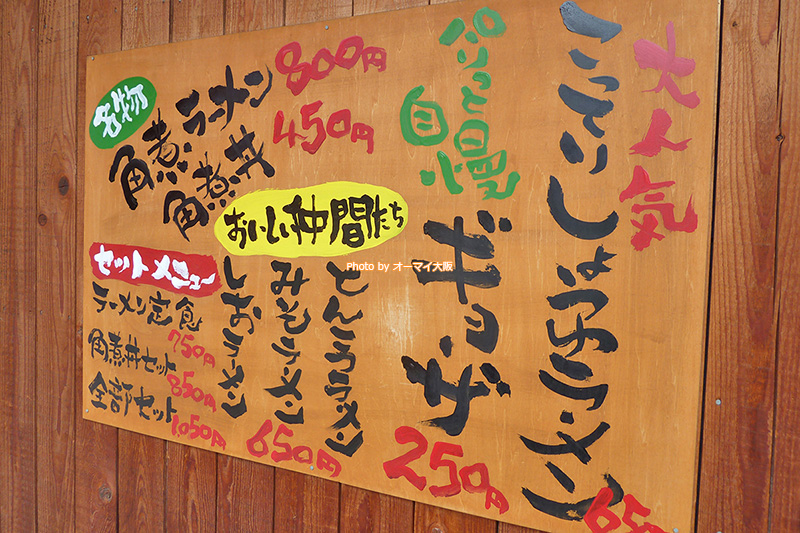 大人気
こってりしょうゆラーメン
自慢のコラボ
ギョーザ
250円
名物
角煮ラーメン 800円
角煮丼 450円
おいしい仲間たち
とんこつラーメン
みそラーメン
しおラーメン
650円
セットメニュー
ラーメン定食
750円
角煮丼セット
850円
全部セット
1,050円
Photo by オーマイ大阪